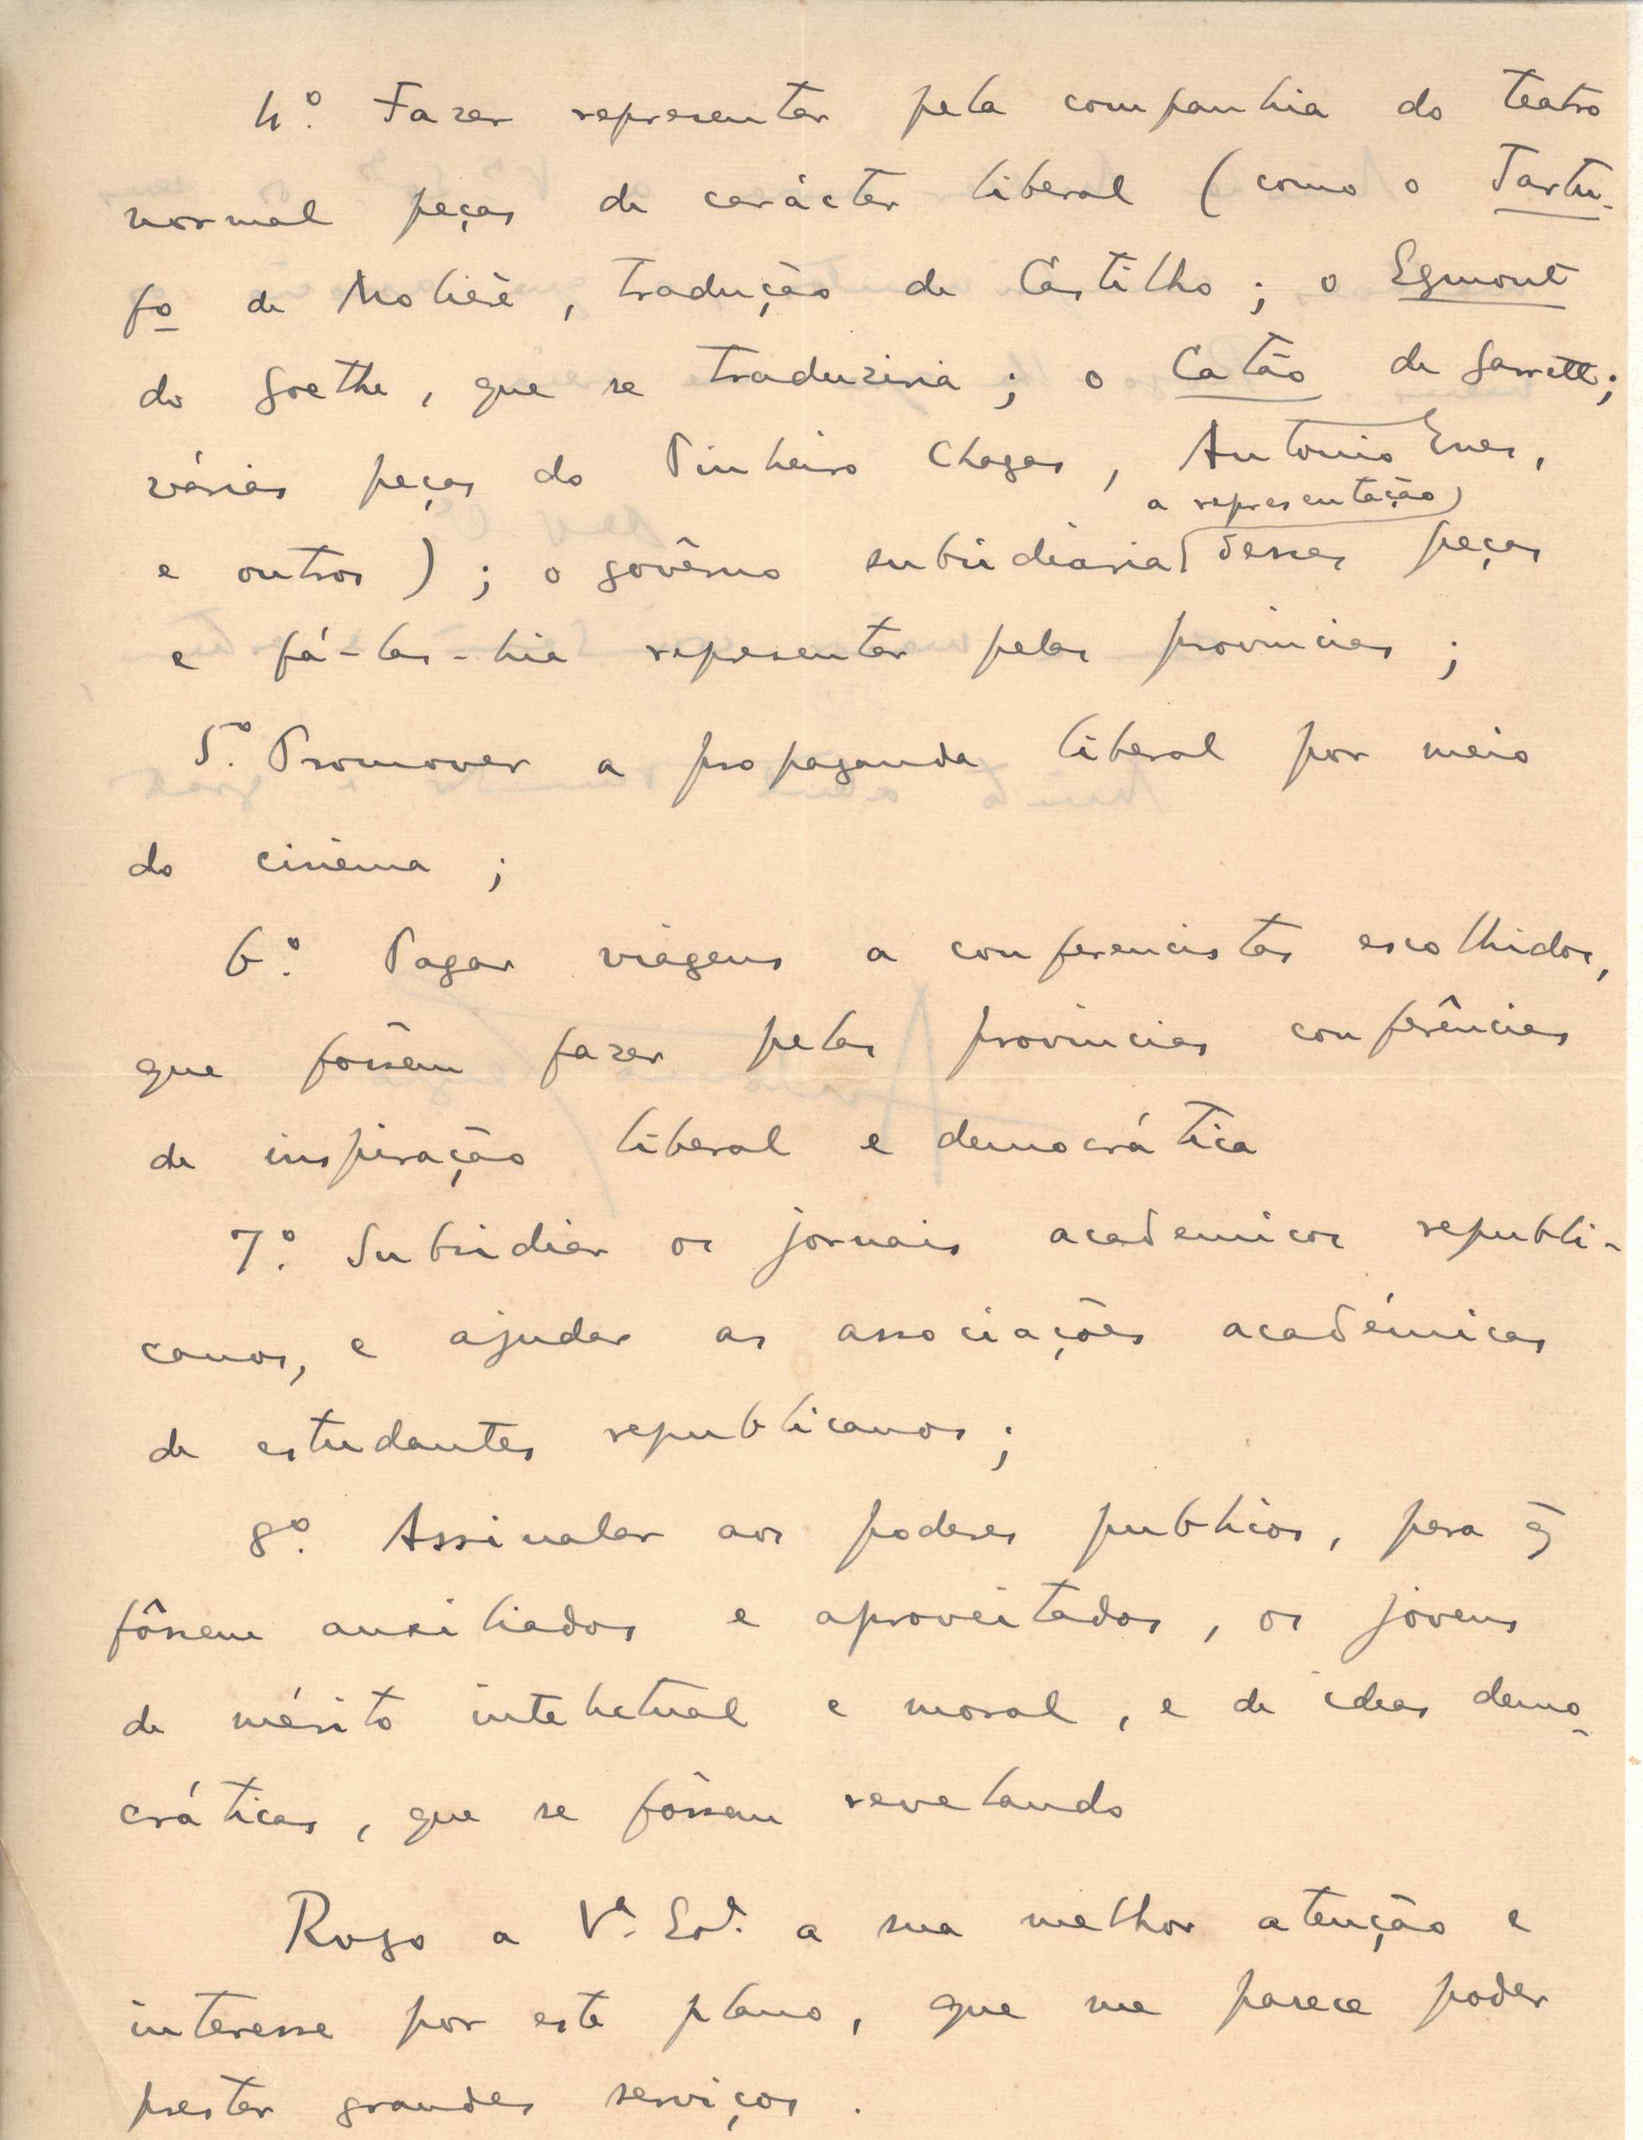 4.º Fazer representar pela companhia do teatro
normal peças de carácter liberal (como o Tartu-
fo de Molière, tradução de Castilho; o Egmont
do Goethe, que se traduziria; o Catão de Garrett;
várias peças do Pinheiro Chagas, Antonio Enes,
a representação
e outros); o govêrno subsidiaria dessas peças
e fá-las-hia representar pelas provincias;
5.º Promover a propaganda liberal por meio
do cinema;
6.º Pagar viagens a conferencistas escolhidos,
que fôssem fazer pelas provincias conferências
de inspiração liberal e democrática
7.º Subsidiar os jornais academicos republi-
canos, e ajudar as associações académicas
de estudantes republicanos;
8.º Assinalar aos poderes publicos, para q̃
fôssem auxiliados e aproveitados, os jovens
de mérito intelectual e moral, e de ideas demo-
cráticas, que se fôssem revelando
Rogo a V.ª Ex.ª a sua melhor atenção e
interesse por este plano, que me parece poder
prestar grandes serviços.